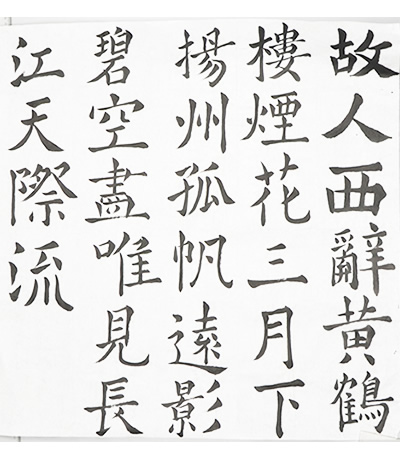 故人西辭黄鶴
樓煙花三月下
揚州孤帆遠影
碧空盡唯見長
江天際流